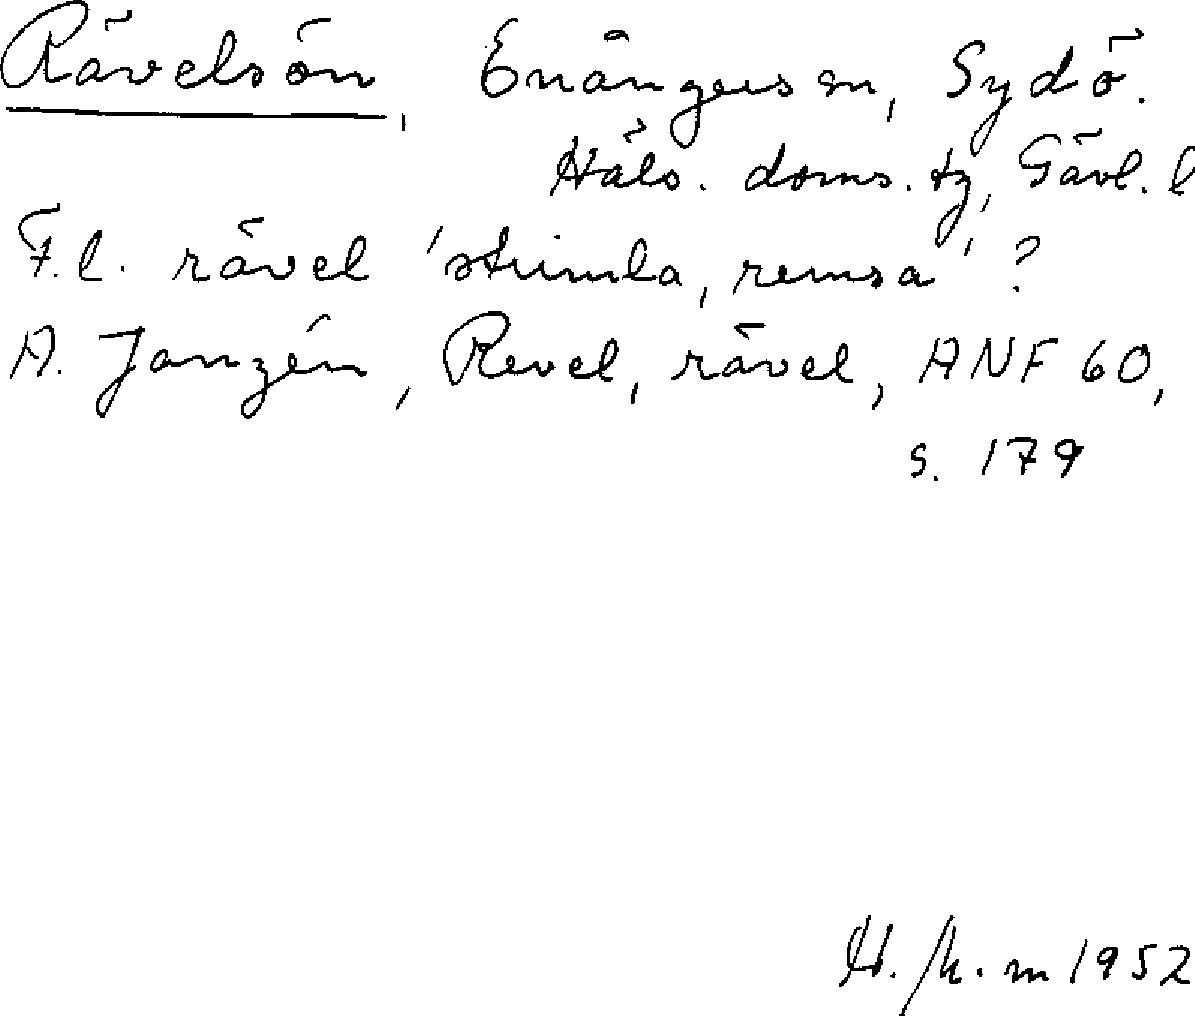 Rävelsön, Enångers sn, Sydö.
Häls. doms. tg, Gävl. l
F.l. rävel 'strimla, remsa'?
A. Janzén, Revel, rävel, ANF 60,
s. 179
m 1952